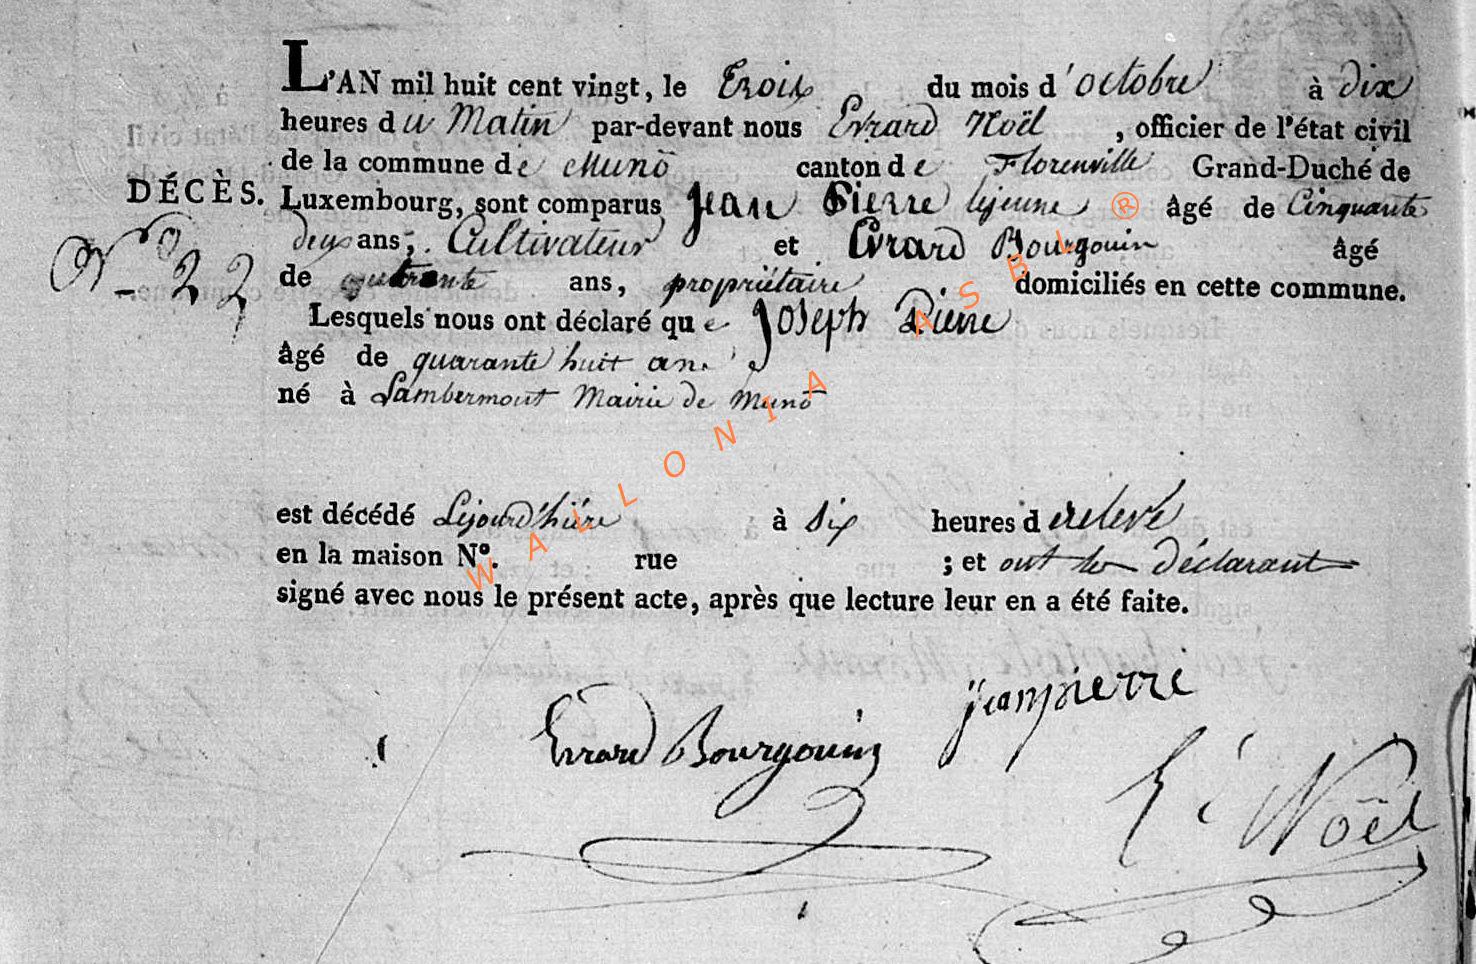 L'AN mil huit cent vingt, le Trois du mois d'octobre à dix
heures du Matin par-devant nous Evrard Noël, officier de l'état civil
de la commune de Muno canton de Florenville Grand-Duché de
DÉCÈS. Luxembourg, sont comparus Jean Pierre lejeune âgé de Cinquante
deux ans, Cultivateur et Evrard Bourgouin âgé
N° 22
de quarante ans, propriétaire domiciliés en cette commune.
Lesquels nous ont déclaré que Joseph Pierre
âgé de quarante huit ans
né à Lambermont Mairie de Muno
est décédé Lejourd'hiére à Six heures de relevé
en la maison N°. rue ; et ont les déclarant
signé avec nous le présent acte, après que lecture leur en a été faite.
Evrard Bourgouin jeanpierre
E. Noël
WALLONIA ASBL ®